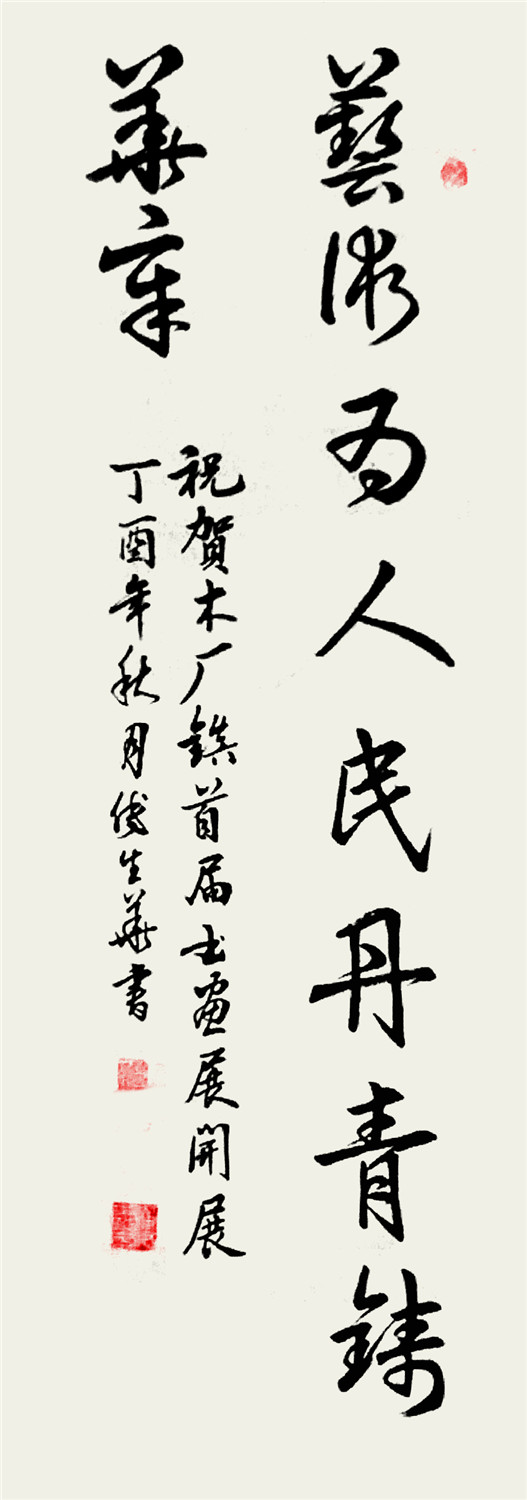 藝術為人民丹青鑄
華章
祝賀木厂鎮首届书畫展開展
丁酉年秋月傅生華書